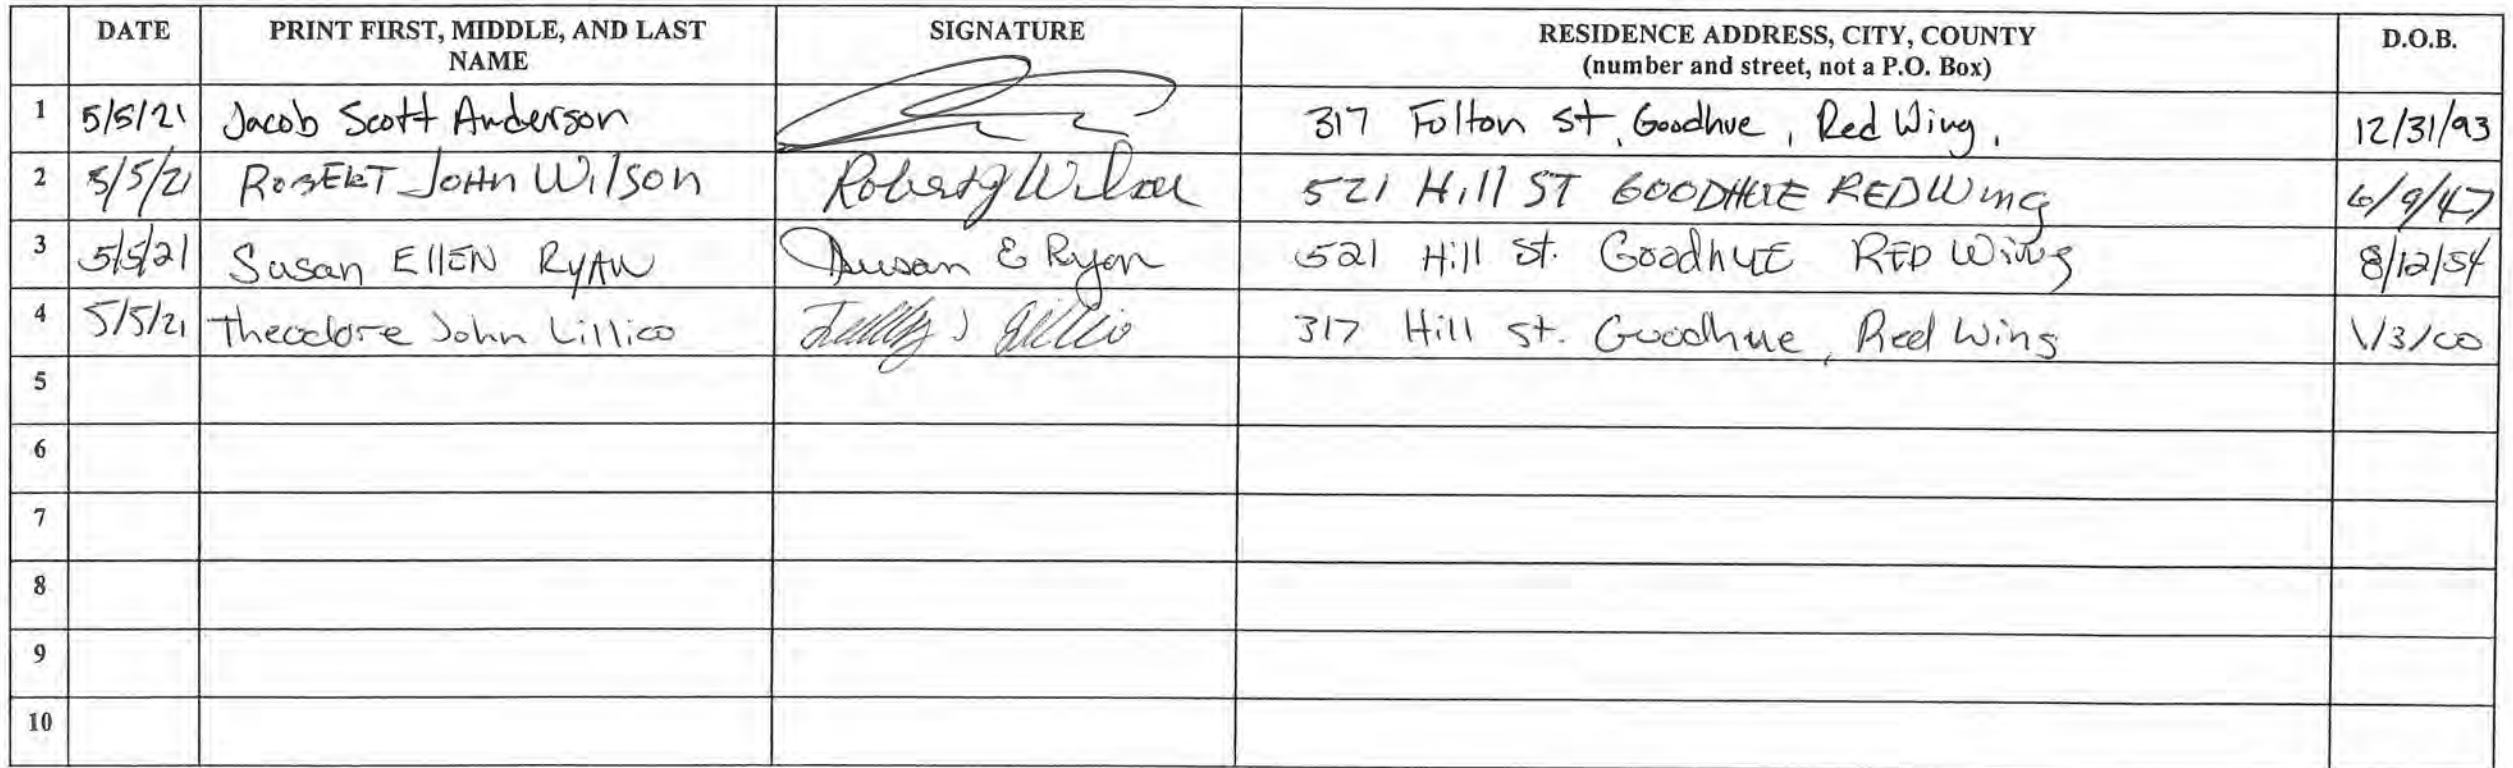 DATE PRINT FIRST, MIDDLE, AND LAST NAME SIGNATURE RESIDENCE ADDRESS, CITY, COUNTY (number and street, not a P.O. Box) D.O.B.
1 5/5/21 Jacob Scott Anderson 317 Fulton St, Goodhue, Red Wing, 12/31/93
2 5/5/21 ROBERT JOHN WILSON Robert J Wilson 521 Hill ST GOODHUE RED WING 6/9/47
3 5/5/21 Susan EllEN RYAN Susan E Ryan 521 Hill St. Goodhue RED Wing 8/12/54
4 5/5/21 Theodore John Lillico 317 Hill St. Goodhue, Red Wing 1/3/00
5
6
7
8
9
10